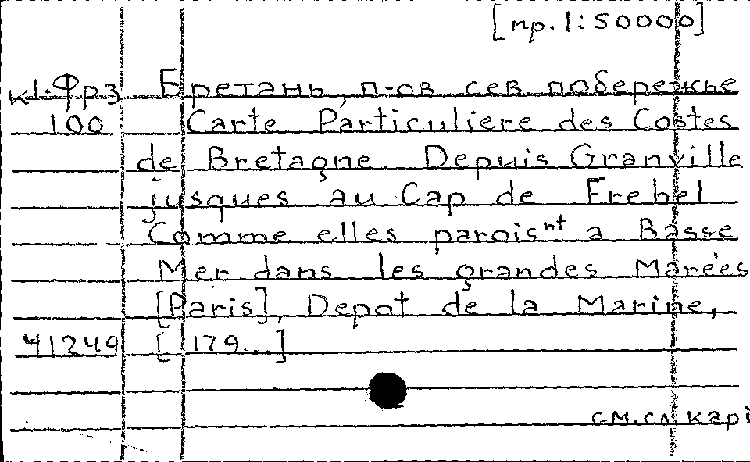 [пр. 1:50000]
к1-Фрз Бретань, п-ов сев побережье
100 Carte Particuliere des Costes
de Bretagne Depuis Granville
jusques au Cap de Frehel
Comme elles paroisnt a Basse
Mer dans les grandes Marées
[Paris], Depot de la Marine,
41249 [179...]
см.сл. карт